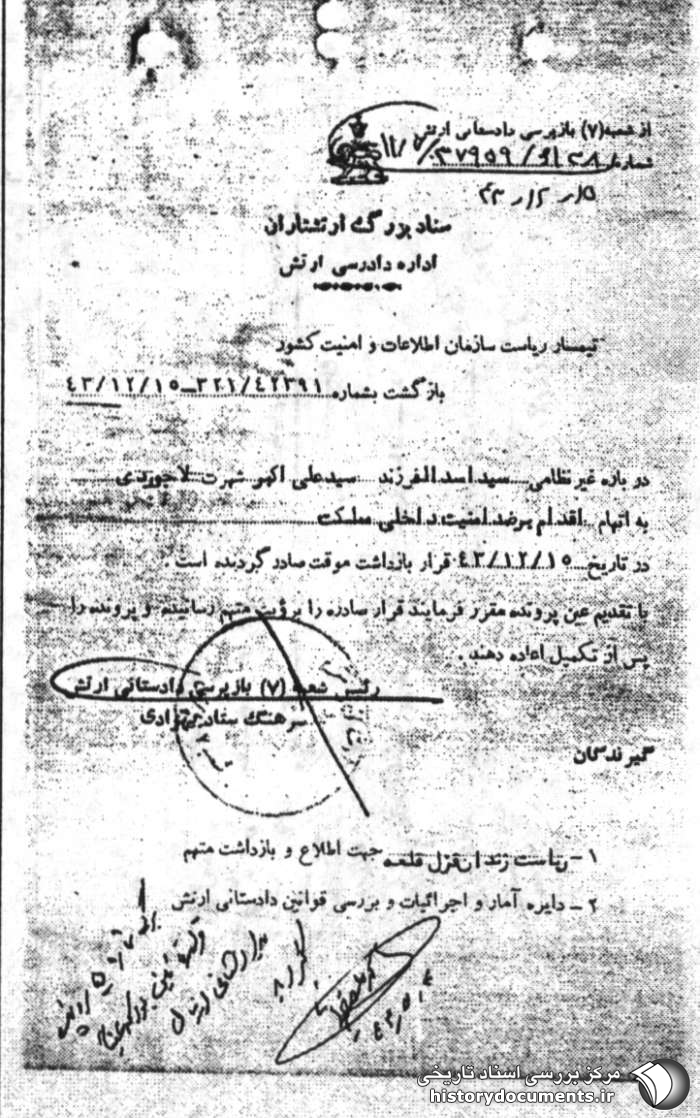 از شعبه (۷) بازپرسی دادستانی ارتش
شماره
ستاد بزرگ ارتشتاران
اداره دادرسی ارتش
تیمسار ریاست سازمان اطلاعات و امنیت کشور
بازگشت بشماره ۳۲۱/۴۲۳۹۱ ـ ۴۳/۱۲/۱۵
در باره غیر نظامی سید اسداله فرزند سید علی اکبر شهرت لاجوردی
به اتهام اقدام برضد امنیت داخلی مملکت
در تاریخ ۴۳/۱۲/۱۵ قرار بازداشت موقت صادر گردیده است .
با تقدیم عین پرونده مقرر فرمایند قرار صادره را برؤیت متهم رسانیده و پرونده را
پس از تکمیل اعاده دهند .
رئیس شعبه (۷) بازپرسی دادستانی ارتش
سرهنگ ستاد بهزادی
گیرندگان
۱ - ریاست زندان قزل قلعه جهت اطلاع و بازداشت متهم
۲ - دایره آمار و اجرائیات و بررسی قوانین دادستانی ارتش
مرکز بررسی اسناد تاریخی
historydocuments.ir